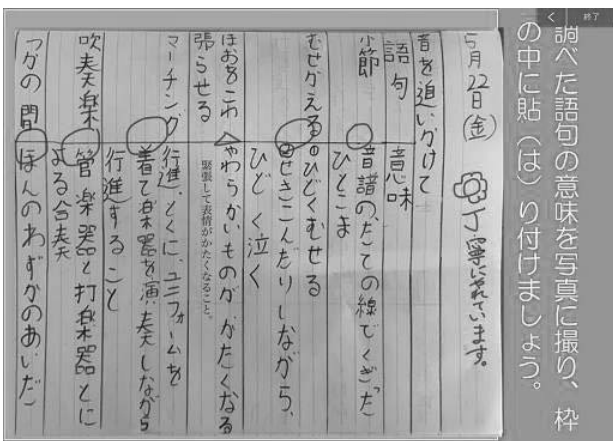 終了
調べた語句の意味を写真に撮り、枠
の中に貼（は）り付けましょう。
5月22日（金）
丁寧にやれています。
音を追いかけて
語句
意味
小節
音譜の、たての線でくぎった
ひとこま
むせかえる
①ひどくむせる
②せきこんだりしながら、
ひどく泣く
ほおをこわ
張らせる
やわらかいものが、かたくなる
緊張して表情がかたくなること。
マーチング
行進、とくに、ユニフォームを
着て楽器を演奏しながら
行進すること
吹奏楽
管楽器と打楽器とに
よる合奏
つかの間
ほんのわずかのあいだ